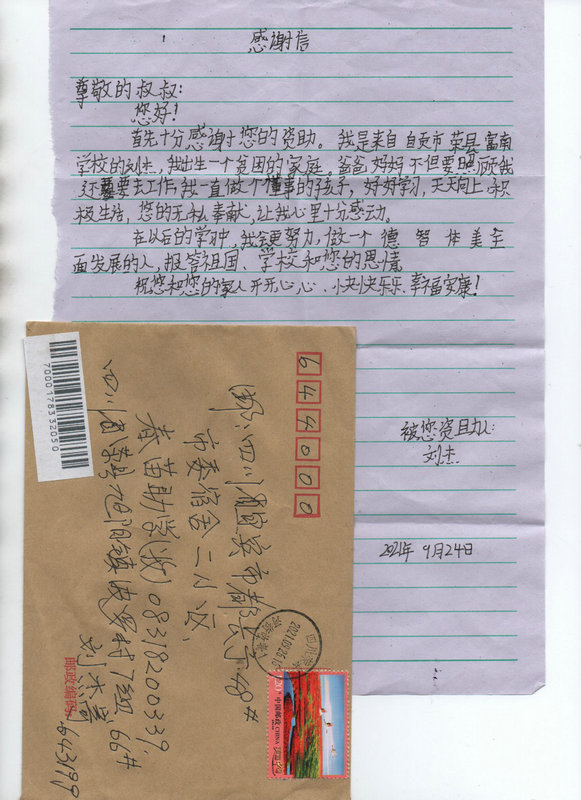 感谢信
尊敬的叔叔:
您好!
首先十分感谢您的资助。我是来自自贡市荣县富南
学校的刘杰,我出生一个贫困的家庭。爸爸妈妈不但要照顾我
还要去工作,我一直做个懂事的孩子,好好学习,天天向上,积
极生活,您的无私奉献,让我心里十分感动。
在以后的学习中,我会更努力,做一个德智体美全
面发展的人,报答祖国、学校和您的恩情
祝您和您的家人开开心心、快快乐乐、幸福安康!
被您资助人:
刘杰
2021年9月24日
7000178332050
644000
邮:四川省宜宾市都长了48#
市委宿舍二小区
春苗助学(收)08318200339
四川省 镇 村7组66#
刘杰
邮政编码 643199
四川
2021.09.26.16
120分 中国邮政 CHINA